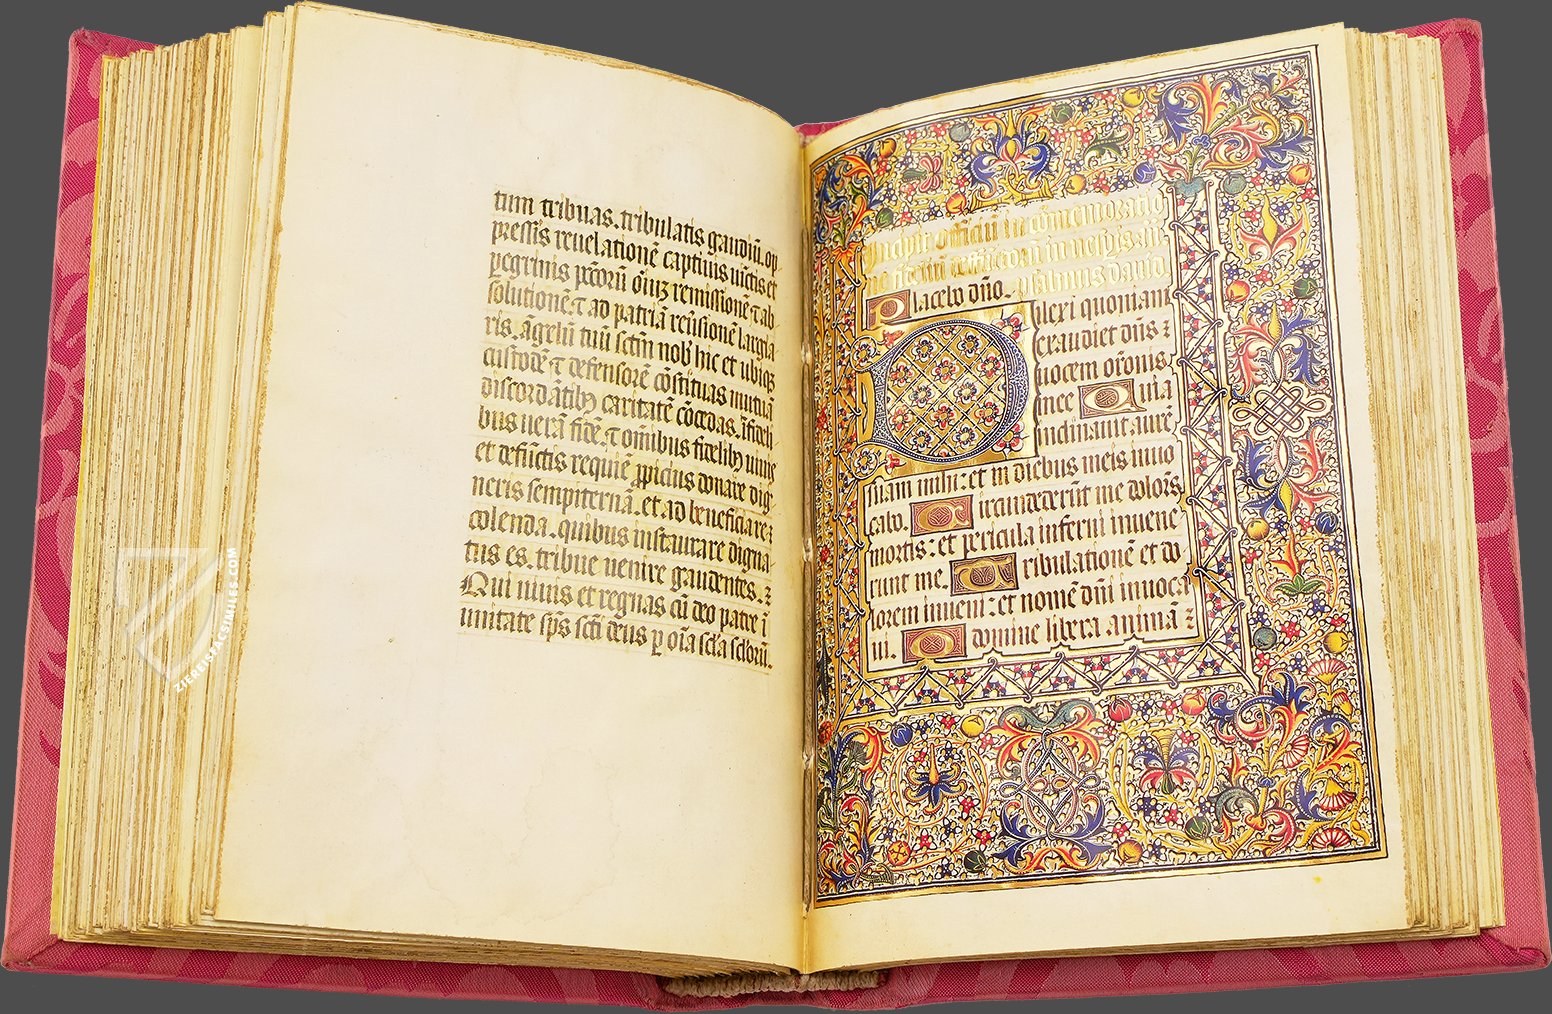 tum tribuas. tribulatis gaudiū. op
pressis reuelationē captiuis uīctis et
pegrinis pctorū oīuz remissionē ⁊ ab
solutionē. ⁊ ad patriā reūsionē largia
ris. āgelū tuū sctm nob hic et ubiqz
custodē ⁊ defensorē cōstituas mutuā
discordātibȝ caritatē cōcedas. īfideli
bus uerā fidē. ⁊ omibus fidelibȝ uiuie
et defūctis requiē ppicius donare dig
neris sempiternā. et ad beneficia re
colenda. quibus instaurare digna
tus es. tribue uenire gaudentes. ⁊
Qui uiuis et regnas cū deo patre ī
unitate sps scti deus p oīa scla sclorū.
Incipit officiū in cōmemoratio
psalmus dauid
Placebo dño.
Dilexi quoniam
exaudiet dn̄s ⁊
uocem orōnis
mee Quia
inclinauit aurē
suam mihi: et in diebus meis inuo
cabo. Circumdederūt me dolorēs
mortis: et pericula inferni inuene
runt me. Tribulationē et do
lorem inueni: et nomē dn̄i inuoca
ui. O domine libera animā ⁊
ZIEREISFACSIMILES.COM